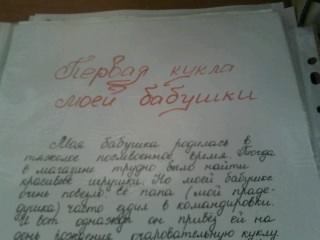 Первая кукла
моей бабушки
Моя бабушка родилась в
тяжелое послевоенное время. Тогда
в магазине трудно было найти
красивые игрушки. Но моей бабушке
очень повезло. Её папа (мой праде-
душка) часто ездил в командировки.
И вот однажды он привёз ей на
день рождения очаровательную куклу.